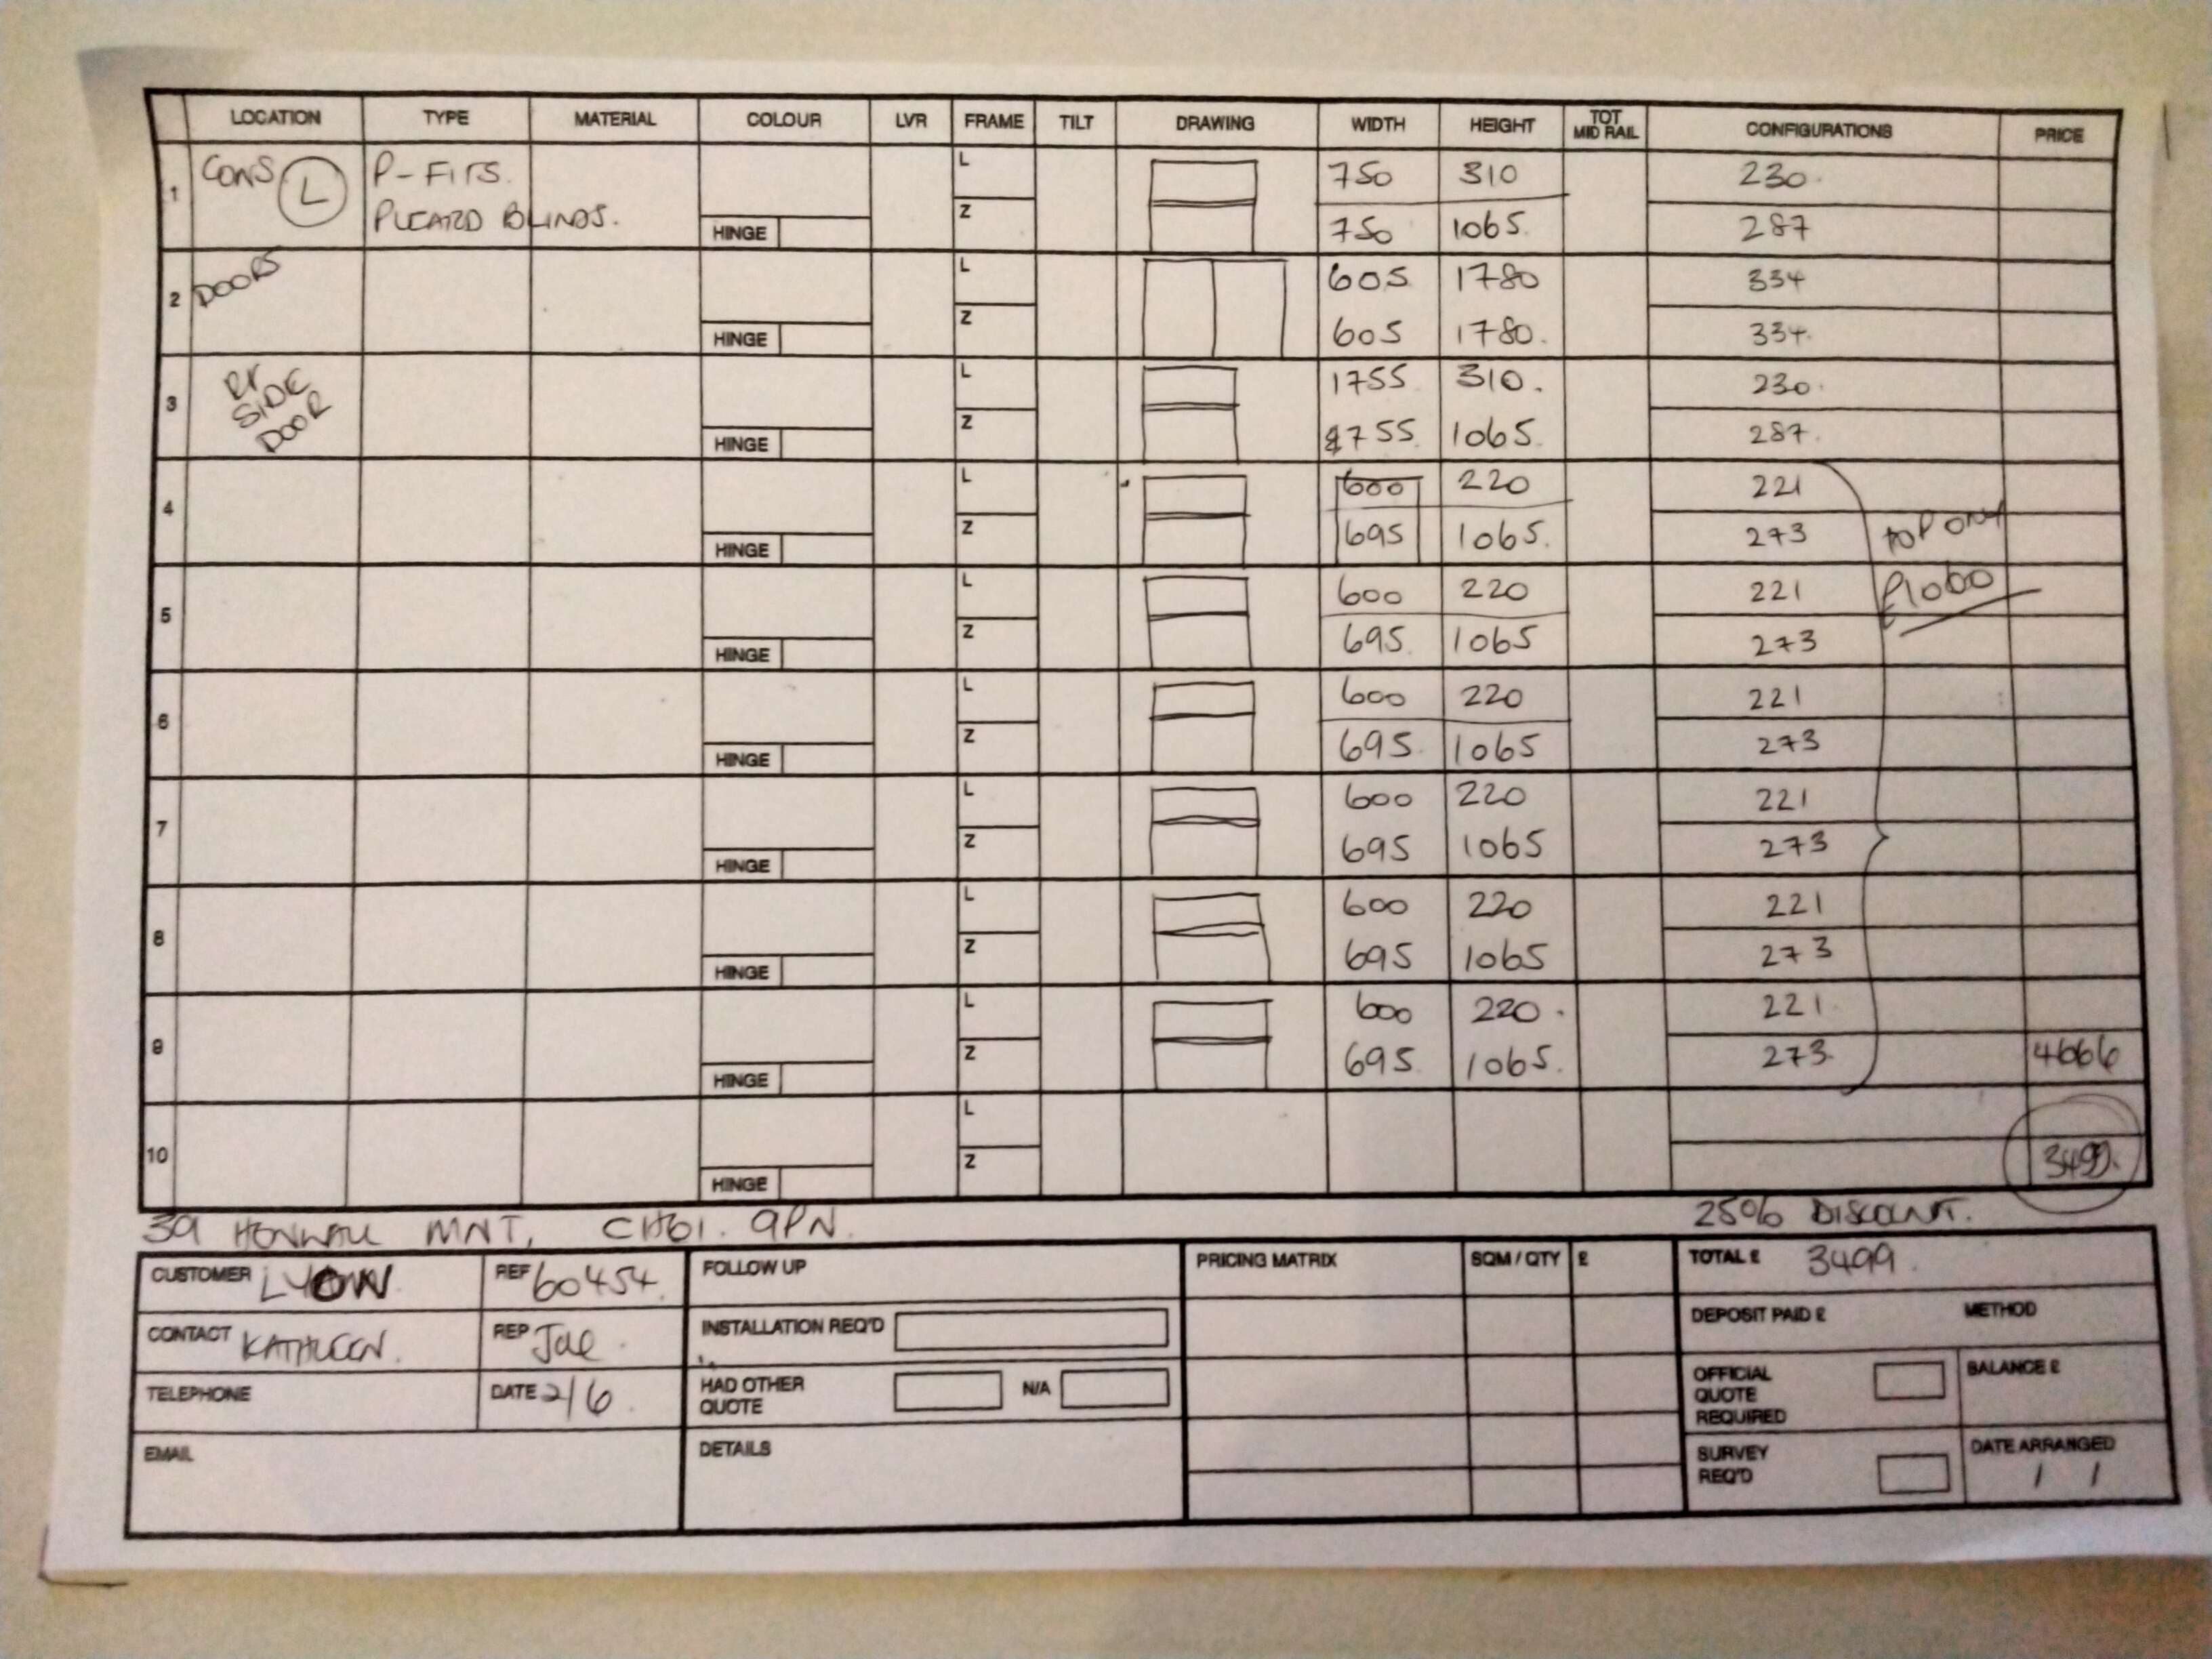 LOCATION TYPE MATERIAL COLOUR LVR FRAME TILT DRAWING WIDTH HEIGHT TOT MID RAIL CONFIGURATIONS PRICE
1 CONS L P-FITS. L 750 310 230.
PLEATED BLINDS. HINGE Z 750 1065. 287
2 DOORS L 605 1780 334
HINGE Z 605 1780. 334.
3 RT SIDE DOOR L 1755 310. 230.
HINGE Z 1755 1065. 287.
4 L 600 220 221
HINGE Z 695 1065. 273 TOP ONLY
5 L 600 220 221 £1060
HINGE Z 695. 1065 273
6 L 600 220 221
HINGE Z 695. 1065 273
7 L 600 220 221
HINGE Z 695 1065 273
8 L 600 220 221
HINGE Z 695 1065 273
9 L 600 220. 221.
HINGE Z 695 1065. 273. 4666
10 L
HINGE Z 3499.
39 MNT, CH61. 9PN. 25% DISCOUNT.
CUSTOMER LYON REF 60454. FOLLOW UP PRICING MATRIX SQM / QTY £ TOTAL £ 3499.
CONTACT KATHLEEN. REP Joe. INSTALLATION REQ'D DEPOSIT PAID £ METHOD
TELEPHONE DATE 2/6. HAD OTHER QUOTE N/A OFFICIAL QUOTE REQUIRED BALANCE £
EMAIL DETAILS SURVEY REQ'D DATE ARRANGED
/ /